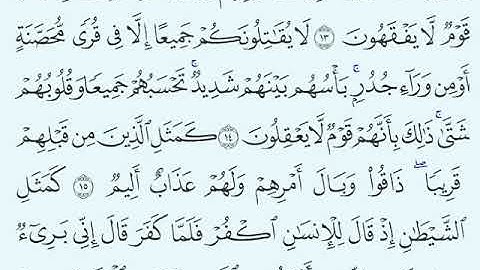 قَوْمٌ لَّا يَفْقَهُونَ ١٣ لَا يُقَٰتِلُونَكُمْ جَمِيعًا إِلَّا فِى قُرًى مُّحَصَّنَةٍ
أَوْ مِن وَرَآءِ جُدُرٍۭ ۚ بَأْسُهُم بَيْنَهُمْ شَدِيدٌ ۚ تَحْسَبُهُمْ جَمِيعًا وَقُلُوبُهُمْ
شَتَّىٰ ۚ ذَٰلِكَ بِأَنَّهُمْ قَوْمٌ لَّا يَعْقِلُونَ ١٤ كَمَثَلِ ٱلَّذِينَ مِن قَبْلِهِمْ
قَرِيبًا ۖ ذَاقُوا۟ وَبَالَ أَمْرِهِمْ وَلَهُمْ عَذَابٌ أَلِيمٌ ١٥ كَمَثَلِ
ٱلشَّيْطَٰنِ إِذْ قَالَ لِلْإِنسَٰنِ ٱكْفُرْ فَلَمَّا كَفَرَ قَالَ إِنِّى بَرِىٓءٌ